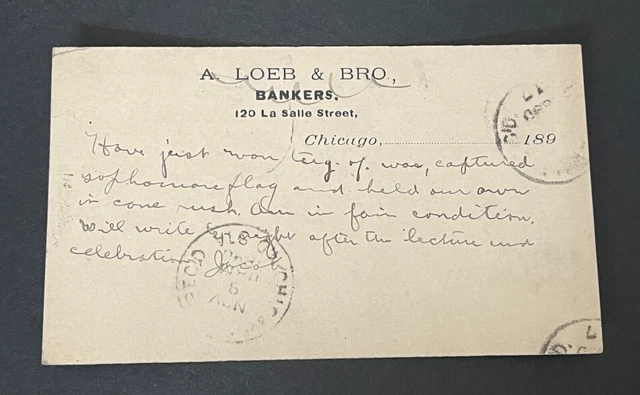 A. LOEB & BRO.,
BANKERS,
120 La Salle Street,
Chicago, 189
Have just won tug of war, captured
sophomore flag and held our own
in cane rush. Am in fair condition.
Will write to night after the lecture and
celebration Jacob
REC'D
NOV
9